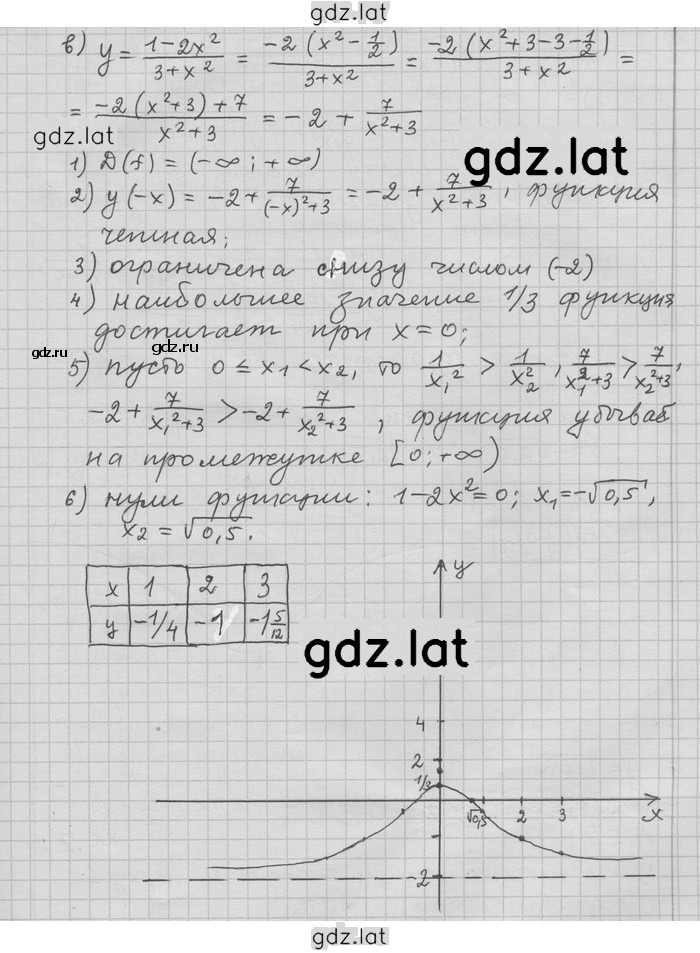 gdz.lat
в) y = (1-2x²)/(3+x²) = (-2(x² - 1/2))/(3+x²) = (-2(x²+3-3-1/2))/(3+x²) =
= (-2(x²+3)+7)/(x²+3) = -2 + 7/(x²+3)
gdz.lat
gdz.lat
1) D(f) = (-∞; +∞)
2) y(-x) = -2 + 7/((-x)²+3) = -2 + 7/(x²+3), функция
четная;
3) ограничена снизу числом (-2)
4) наибольшее значение 1/3 функция
достигает при x=0;
gdz.ru
gdz.ru
5) пусть 0 ≤ x₁ < x₂, то 1/x₁² > 1/x₂², 7/(x₁²+3) > 7/(x₂²+3),
-2 + 7/(x₁²+3) > -2 + 7/(x₂²+3), функция убывает
на промежутке [0; +∞)
6) нули функции: 1-2x²=0; x₁=-√0,5,
x₂ = √0,5.
x 1 2 3
y -1/4 -1 -1 5/12
gdz.lat
y
4
2
1/3
√0,5 2 3 x
-2
gdz.lat